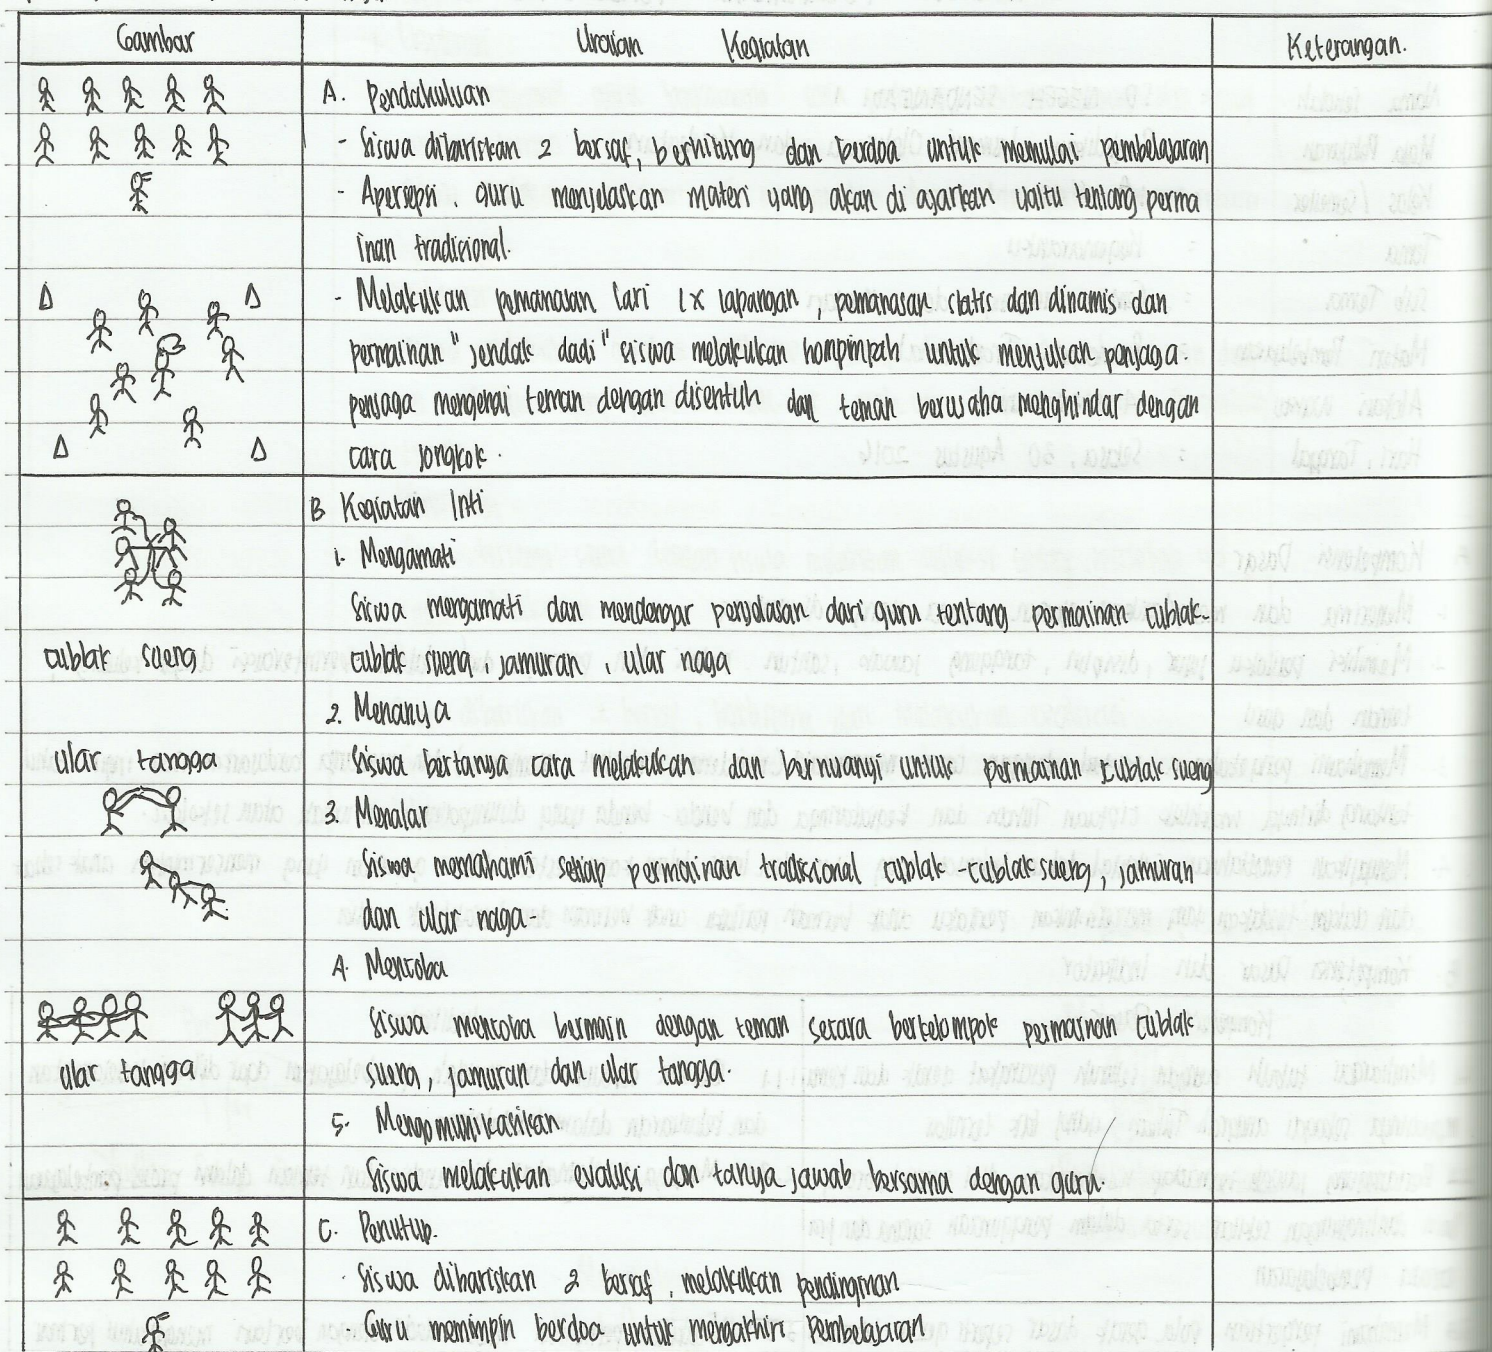 Gambar Uraian Kegiatan Keterangan.
A. Pendahuluan
- Siswa dibariskan 2 bersaf, berhiting dan berdoa untuk memulai pembelajaran
- Apersepsi. guru menjelaskan materi yang akan di ajarkan yaitu tentang perma
inan tradisional.
- Melakukan pemanasan lari 1x lapangan, pemanasan statis dan dinamis dan
permainan "jendak dadi" siswa melakukan hompimpah untuk mentukan penjaga.
penjaga mengenai teman dengan disentuh dan teman berusaha menghindar dengan
cara jongkok.
B Kegiatan Inti
1. Mengamati
Siswa mengamati dan mendengar penjelasan dari guru tentang permainan cublak-
cublak sueng cublak sueng, jamuran, ular naga
2. Menanya
ular tangga Siswa bertanya cara melakukan dan bernyanyi untuk permainan cublak sueng
3. Menalar
Siswa memahami setiap permainan tradisional cublak-cublak sueng, jamuran
dan ular naga-
4. Mencoba
Siswa mencoba bermain dengan teman secara berkelompok permainan cublak
ular tangga sueng, jamuran dan ular tangga.
5. Mengomunikasikan
Siswa melakukan evalusi dan tanya jawab bersama dengan guru.
C. Penutup.
- Siswa dibariskan 2 bersaf, melakukan pendinginan
- Guru memimpin berdoa untuk mengakhiri pembelajaran